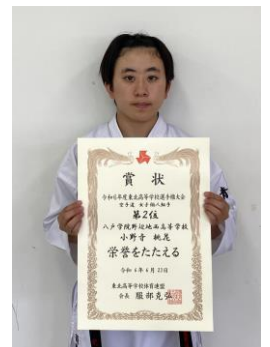 賞状
令和6年度東北高等学校選手権大会
空手道 女子個人組手
第2位
八戸学院野辺地西高等学校
小野寺 桃花
栄誉をたたえる
令和6年6月23日
東北高等学校体育連盟
会長 服部克弥